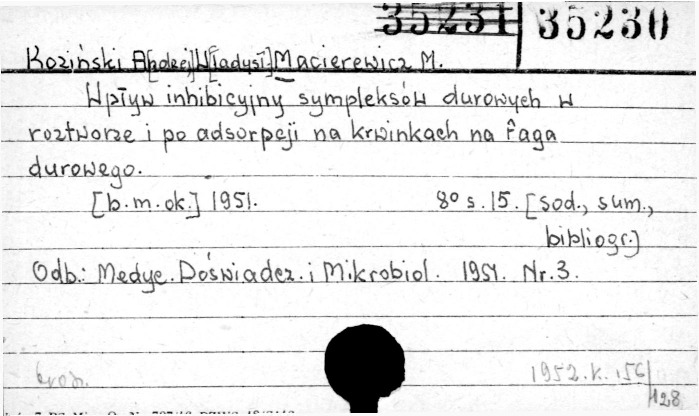 35231 35230
Koziński A[ndrzej] W[ładysł] Macierewicz M.
Wpływ inhibicyjny sympleksów durowych w
roztworze i po adsorpcji na krwinkach na faga
durowego.
[b.m.ok.] 1951. 8° s.15. [sod., sum.,
bibliogr.]
Odb.: Medyc. Doświadcz. i Mikrobiol. 1951. Nr.3.
brosz. 1952.K.156
128